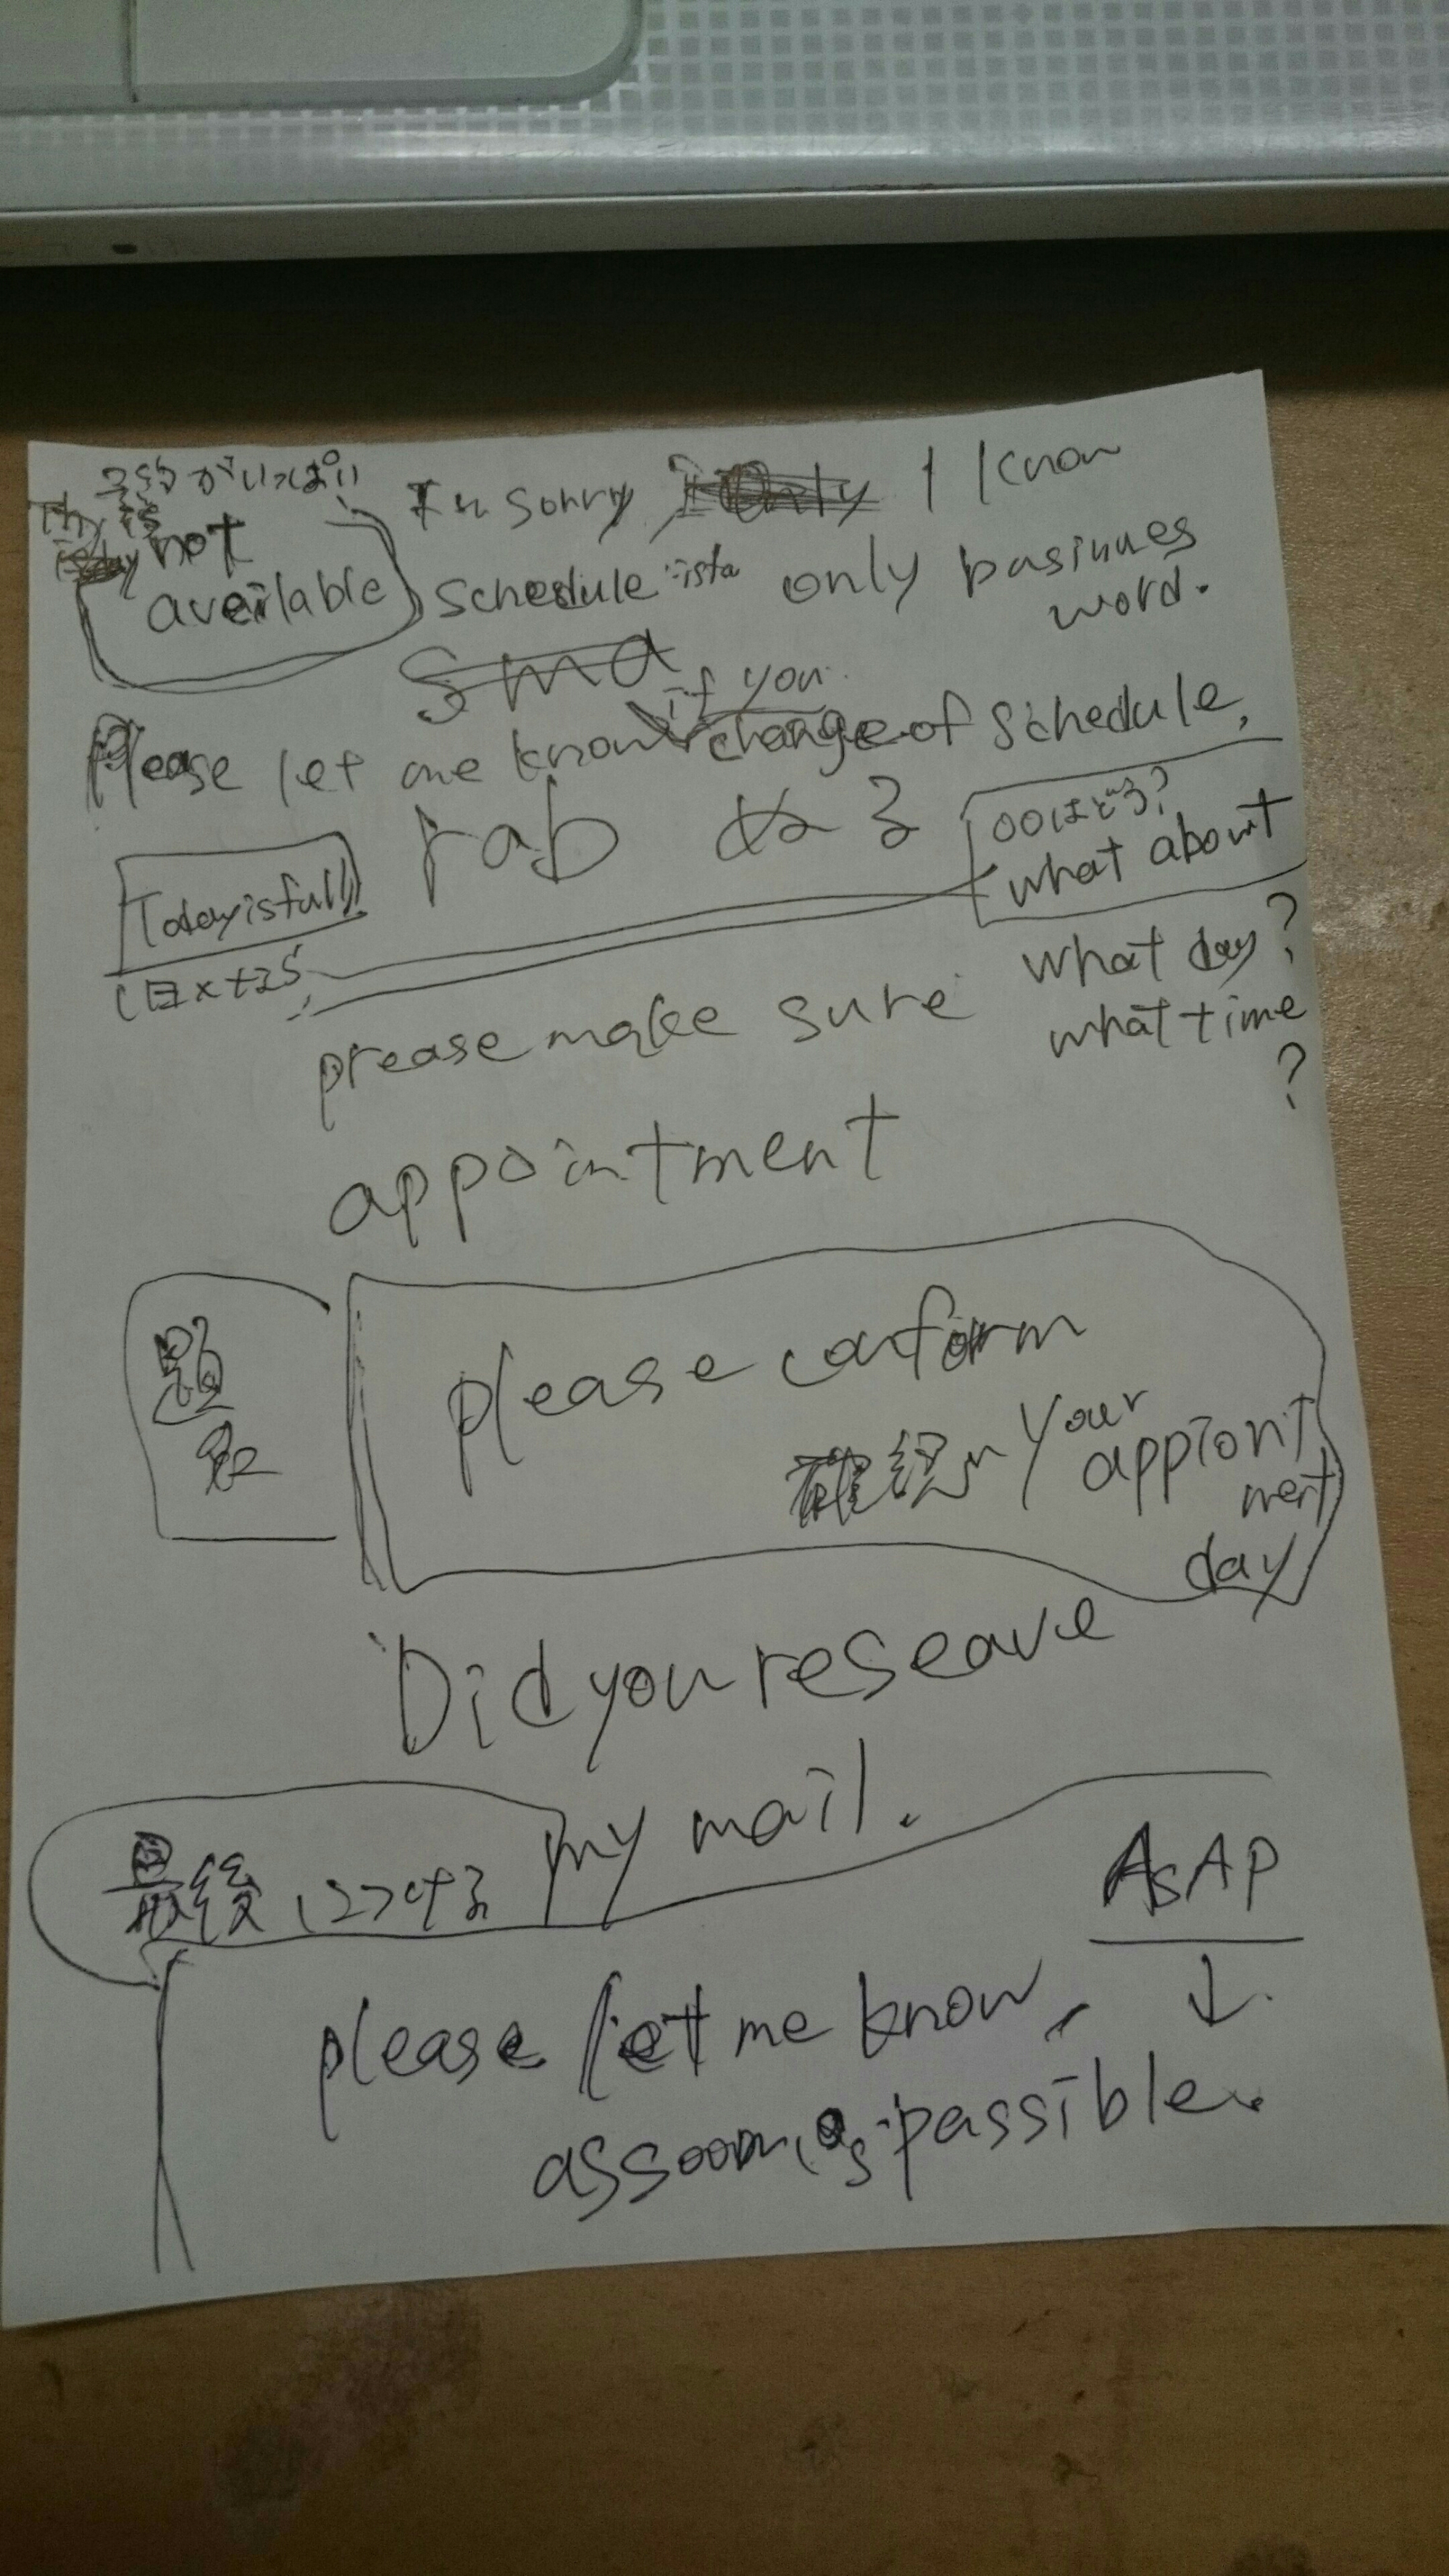 がいっぱい
not
available
sorry I know
schedule only businnes
word.
if you
Please let me know change of schedule,
rab
what about
Today is full
what day?
prease make sure what time
?
appointment
題名
please conform
確認 your
appiont
ment
day
Did you reseave
my mail.
最後につける
ASAP
please let me know,
as soon as passible.